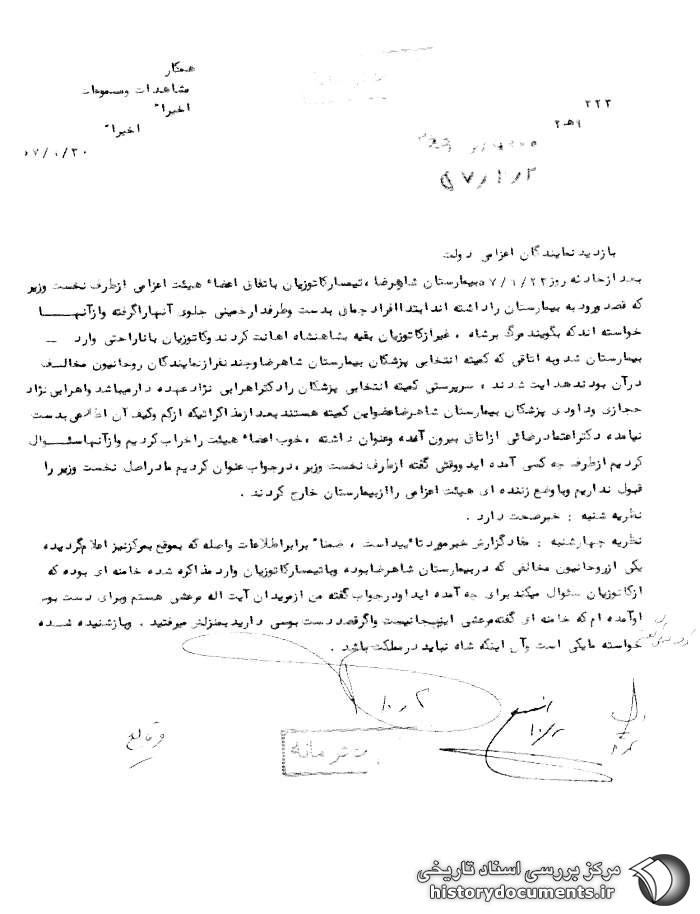 همکار
مشاهدات ومسموعات
اخیرا"
اخیرا"
۵۷/۱۰/۳۰
۲۲۳
۲ه۹
بازدید نمایندگان اعزامی دولت
بعد ازحادثه روز ۵۷/۱۰/۲۳بیمارستان شاهرضا ،تیمسارکاتوزیان باتفاق اعضاء هیئت اعزامی ازطرف نخست وزیر
که قصد ورود به بیمارستان راداشته اندابتدا افراد چماق بدست وطرفدارخمینی جلوی آنهاراگرفته وازآنهـــا
خواسته اندکه بگویند مرگ برشاه ، غیرازکاتوزیان بقیه بشاهنشاه اهانت کردند وکاتوزیان باناراحتی وارد -
بیمارستان شد وبه اتاقی که کمیته انتخابی پزشکان بیمارستان شاهرضا وچند نفرازنمایندگان روحانیون مخالف
درآن بودند هدایت شدند ، سرپرستی کمیته انتخابی پزشکان رادکتراهرابی نژاد عهده دارمیباشد واهرابی نژاد
حجازی وداودی پزشکان بیمارستان شاهرضاعضواین کمیته هستند بعد ازمذاکراتیکه ازکم وکیف آن اطلاعی بدست
نیامده دکتراعتماد رضائی ازاتاق بیرون آمده وعنوان داشته ، خوب اعضاء هیئت راخراب کردیم وازآنهاسئوال
کردیم ازطرف چه کسی آمده اید ووقتی گفته ازطرف نخست وزیر ،درجواب عنوان کردیم مادراصل نخست وزیر را
قبول نداریم وباوضع زننده ای هیئت اعزامی راازبیمارستان خارج کردند .
نظریه شنبه : خبرصحت دارد .
نظریه چهارشنبه : مفاد گزارش خبرمورد تائیداست ، ضمنا" برابراطلاعات واصله که بموقع بمرکزنیز اعلام گردیده
یکی ازروحانیون مخالفی که دربیمارستان شاهرضابوده وباتیمسارکاتوزیان وارد مذاکره شده خامنه ای بوده که
ازکاتوزیان سئوال میکند برای چه آمده اید اودرجواب گفته من ازمریدان آیت اله مرعشی هستم وبرای دست بوسی
اوآمده ام که خامنه ای گفته مرعشی اینجانیست واگرقصد دست بوسی دارید بمنزلش میرفتید . وبازشنیده شده
خواسته مایکی است وآن اینکه شاه نباید درمملکت باشد .
۱۰/۲
وقایع
محرمانه
مرکز بررسی اسناد تاریخی
historydocuments.ir